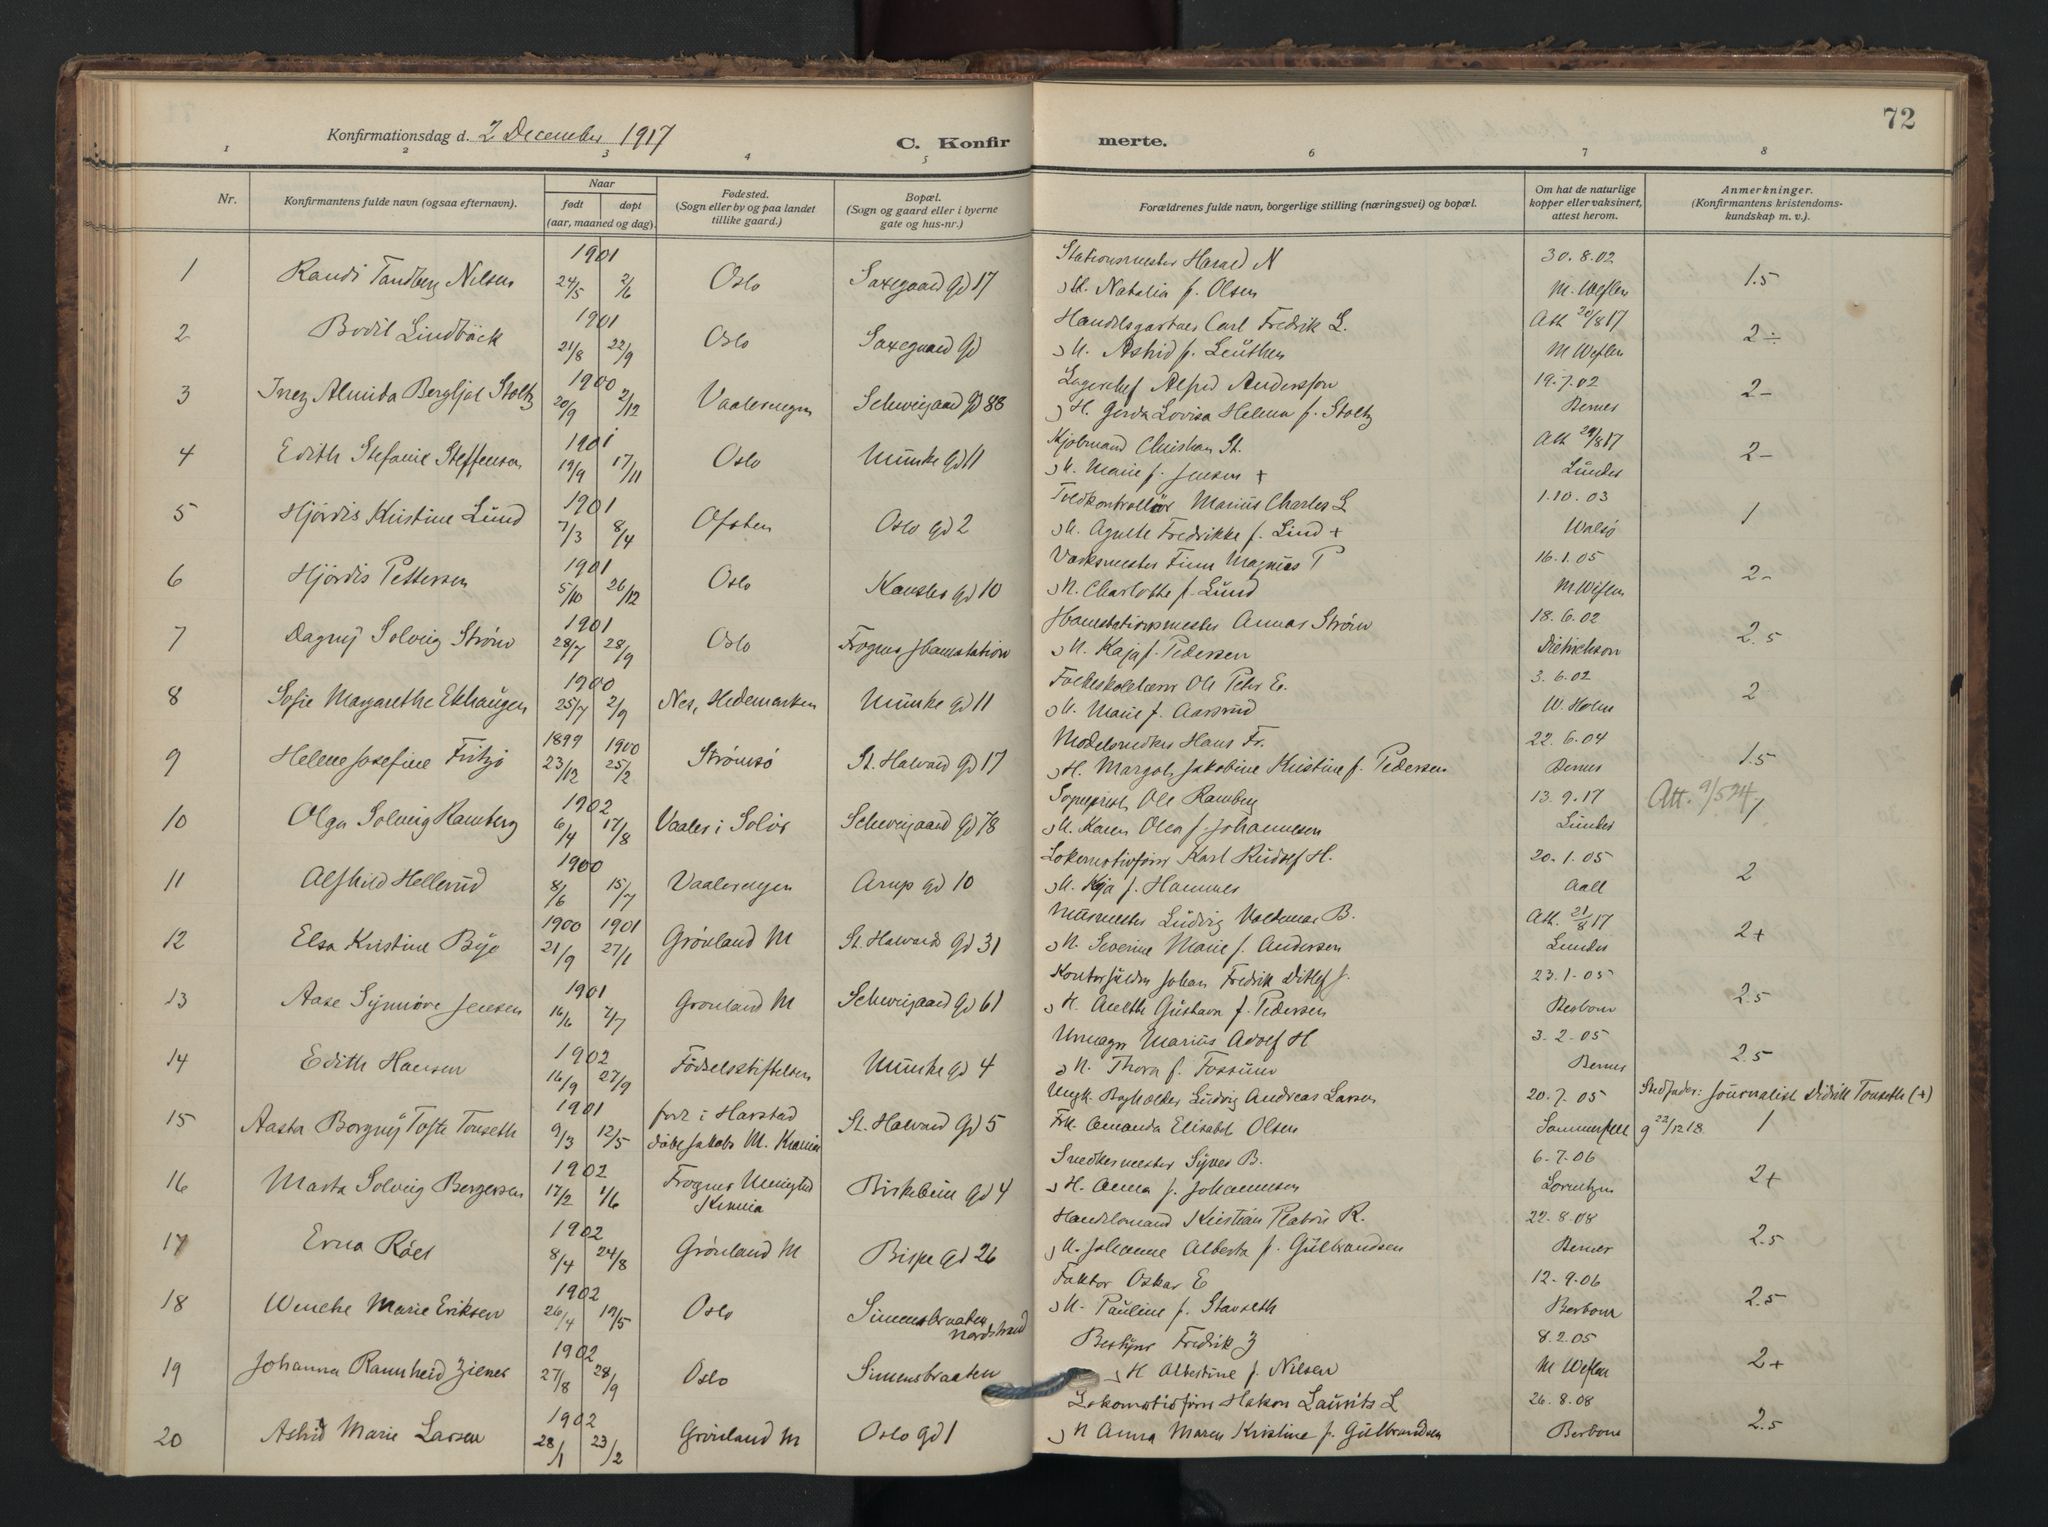 72
Konfirmationsdag d. 2 December 1917
C. Konfir merte.
1 2 3 4 5 6 7 8
Nr.
Konfirmantens fulde navn (ogsaa efternavn).
Naar
født døpt
(aar, maaned og dag).
Fødested.
(Sogn eller by og paa landet
tillike gaard.)
Bopæl.
(Sogn og gaard eller i byerne
gate og hus-nr.)
Forældrenes fulde navn, borgerlige stilling (næringsvei) og bopæl.
Om hat de naturlige
kopper eller vaksinert,
attest herom.
Anmerkninger.
(Konfirmantens kristendoms-
kundskap m. v.).
1901 Stationsmester Harald N 30.8.02
1 Randi Tandberg Nilsen 24/5 2/6 Oslo Saxegaard gd 17 H. Natalia f. Olsen M. Weflen 1.5
1901 Handelsgartner Carl Fredrik L. Att 20/8 17
2 Bodil Lindbäck 21/8 22/9 Oslo Saxegaard gd H. Astrid f. Leuthen M Weflen 2÷
1900 Lagerchef Alfred Andersson 19.7.02
3 Inez Almida Bergljot Stoltz 20/9 2/12 Vaalerengen Schweigaard gd 88 H. Gerda Lovisa Helena f. Stoltz Berner 2-
1901 Kjøbmand Christian St. Att 29/8 17
4 Edith Stefanie Steffensen 19/9 17/11 Oslo Munke gd 11 H. Marie f. Jensen + Lunder 2-
1901 Toldkontrollør Marius Charles L 1.10.03
5 Hjördis Kristine Lund 7/3 8/4 Ofoten Oslo gd 2 H. Agnete Fredrikke f. Lind + Walsø 1
1901 Verksmester Finn Magnus P 16.1.05
6 Hjördis Pettersen 5/10 26/12 Oslo Kansler gd 10 H. Charlotte f. Lund M Weflen 2-
1901 Havnestationsmester Annar Strøm 18.6.02
7 Dagny Solveig Strøm 28/7 28/9 Oslo H. Kaja f. Pedersen Dietrichson 2.5
1900 Folkeskolelærer Ole Peter E. 3.6.02
8 Sofie Margarethe Ekhaugen 25/7 2/9 Nes, Hedemarken Munke gd 11 H. Marie f. Aasrud W. Holm 2
1899 1900 Modelsnedker Hans Fr. 22.6.04
9 Helene Josefine Fritzø 23/12 25/2 Strømsø St. Halvard gd 17 H. Margot Jakobine Kristine f. Pedersen Berner 1.5
1902 Sogneprest Ole Ramberg 13.9.17 Att. 9/5 34
10 Olga Solveig Ramberg 6/4 17/8 Vaaler i Solør Schweigaard gd 78 H. Karen Olea f. Johannesen Lunder 1
1900 Lokomotivfører Karl Rudolf H. 20.1.05
11 Alfhild Hellerud 8/6 15/7 Vaalerengen Arup gd 10 H. Kaja f. Hammer Aall 2
1900 1901 Murmester Ludvig Valdemar B. Att. 21/8 17
12 Elsa Kristine Bye 21/9 27/1 Grønland M St. Halvards gd 31 H. Severine Marie f. Andersen Lunder 2+
1901 Johan Fredrik Ditlef J. 23.1.05
13 Aase Synnøve Jensen 16/6 7/7 Grønland M Schweigaard gd 61 H. Anette Gustava f. Pedersen Berbom 2.5
1902 Urmager Marius Adolf H 3.2.05
14 Edith Hansen 16/9 27/9 Fødselsstiftelsen Munke gd 4 H. Thora f. Fossum Berner 2.5
1901 født i Harstad Ungk. Bogholder Ludvig Andreas Larsen 20.7.05 Stedfader: Journalist Didrik Tønseth (+)
15 Aasta Borgny Tofte Tønseth 9/3 12/5 døbt Jakobs M. Krania St. Halvard gd 5 Frk. Amanda Elisabet Olsen Sommerfelt g 22/12 18. 1
1902 Frogner Menighed Snedkermester Syver B. 6.7.06
16 Marta Solveig Bergersen 17/2 1/6 Krania Birkebein gd 4 H. Anna f. Johannesen Lorentzen 2+
1902 Handelsmand Kristian R. 22.8.08
17 Erna Röer 8/4 24/8 Grønland M Bispe gd 26 H. Johanne Alberta f. Gulbrandsen Berner 2.5
1902 Faktor Oskar E 12.9.06
18 Wenche Marie Eriksen 26/4 19/5 Oslo Simensbraaten Nordstrand H. Pauline f. Stavseth Berbom 2.5
1902 Bestyrer Fredrik Z 8.2.05
19 Johanna Rannheid Ziener 27/8 28/9 Oslo Simensbraaten H Albertine f. Nilsen M Weflen 2+
1902 Lokomotivfører Hakon Laurits L 26.8.08
20 Astrid Marie Larsen 28/1 23/2 Grønland M Oslo gd 1 H Anna Maren Kristine f. Gulbrandsen Berbom 2.5